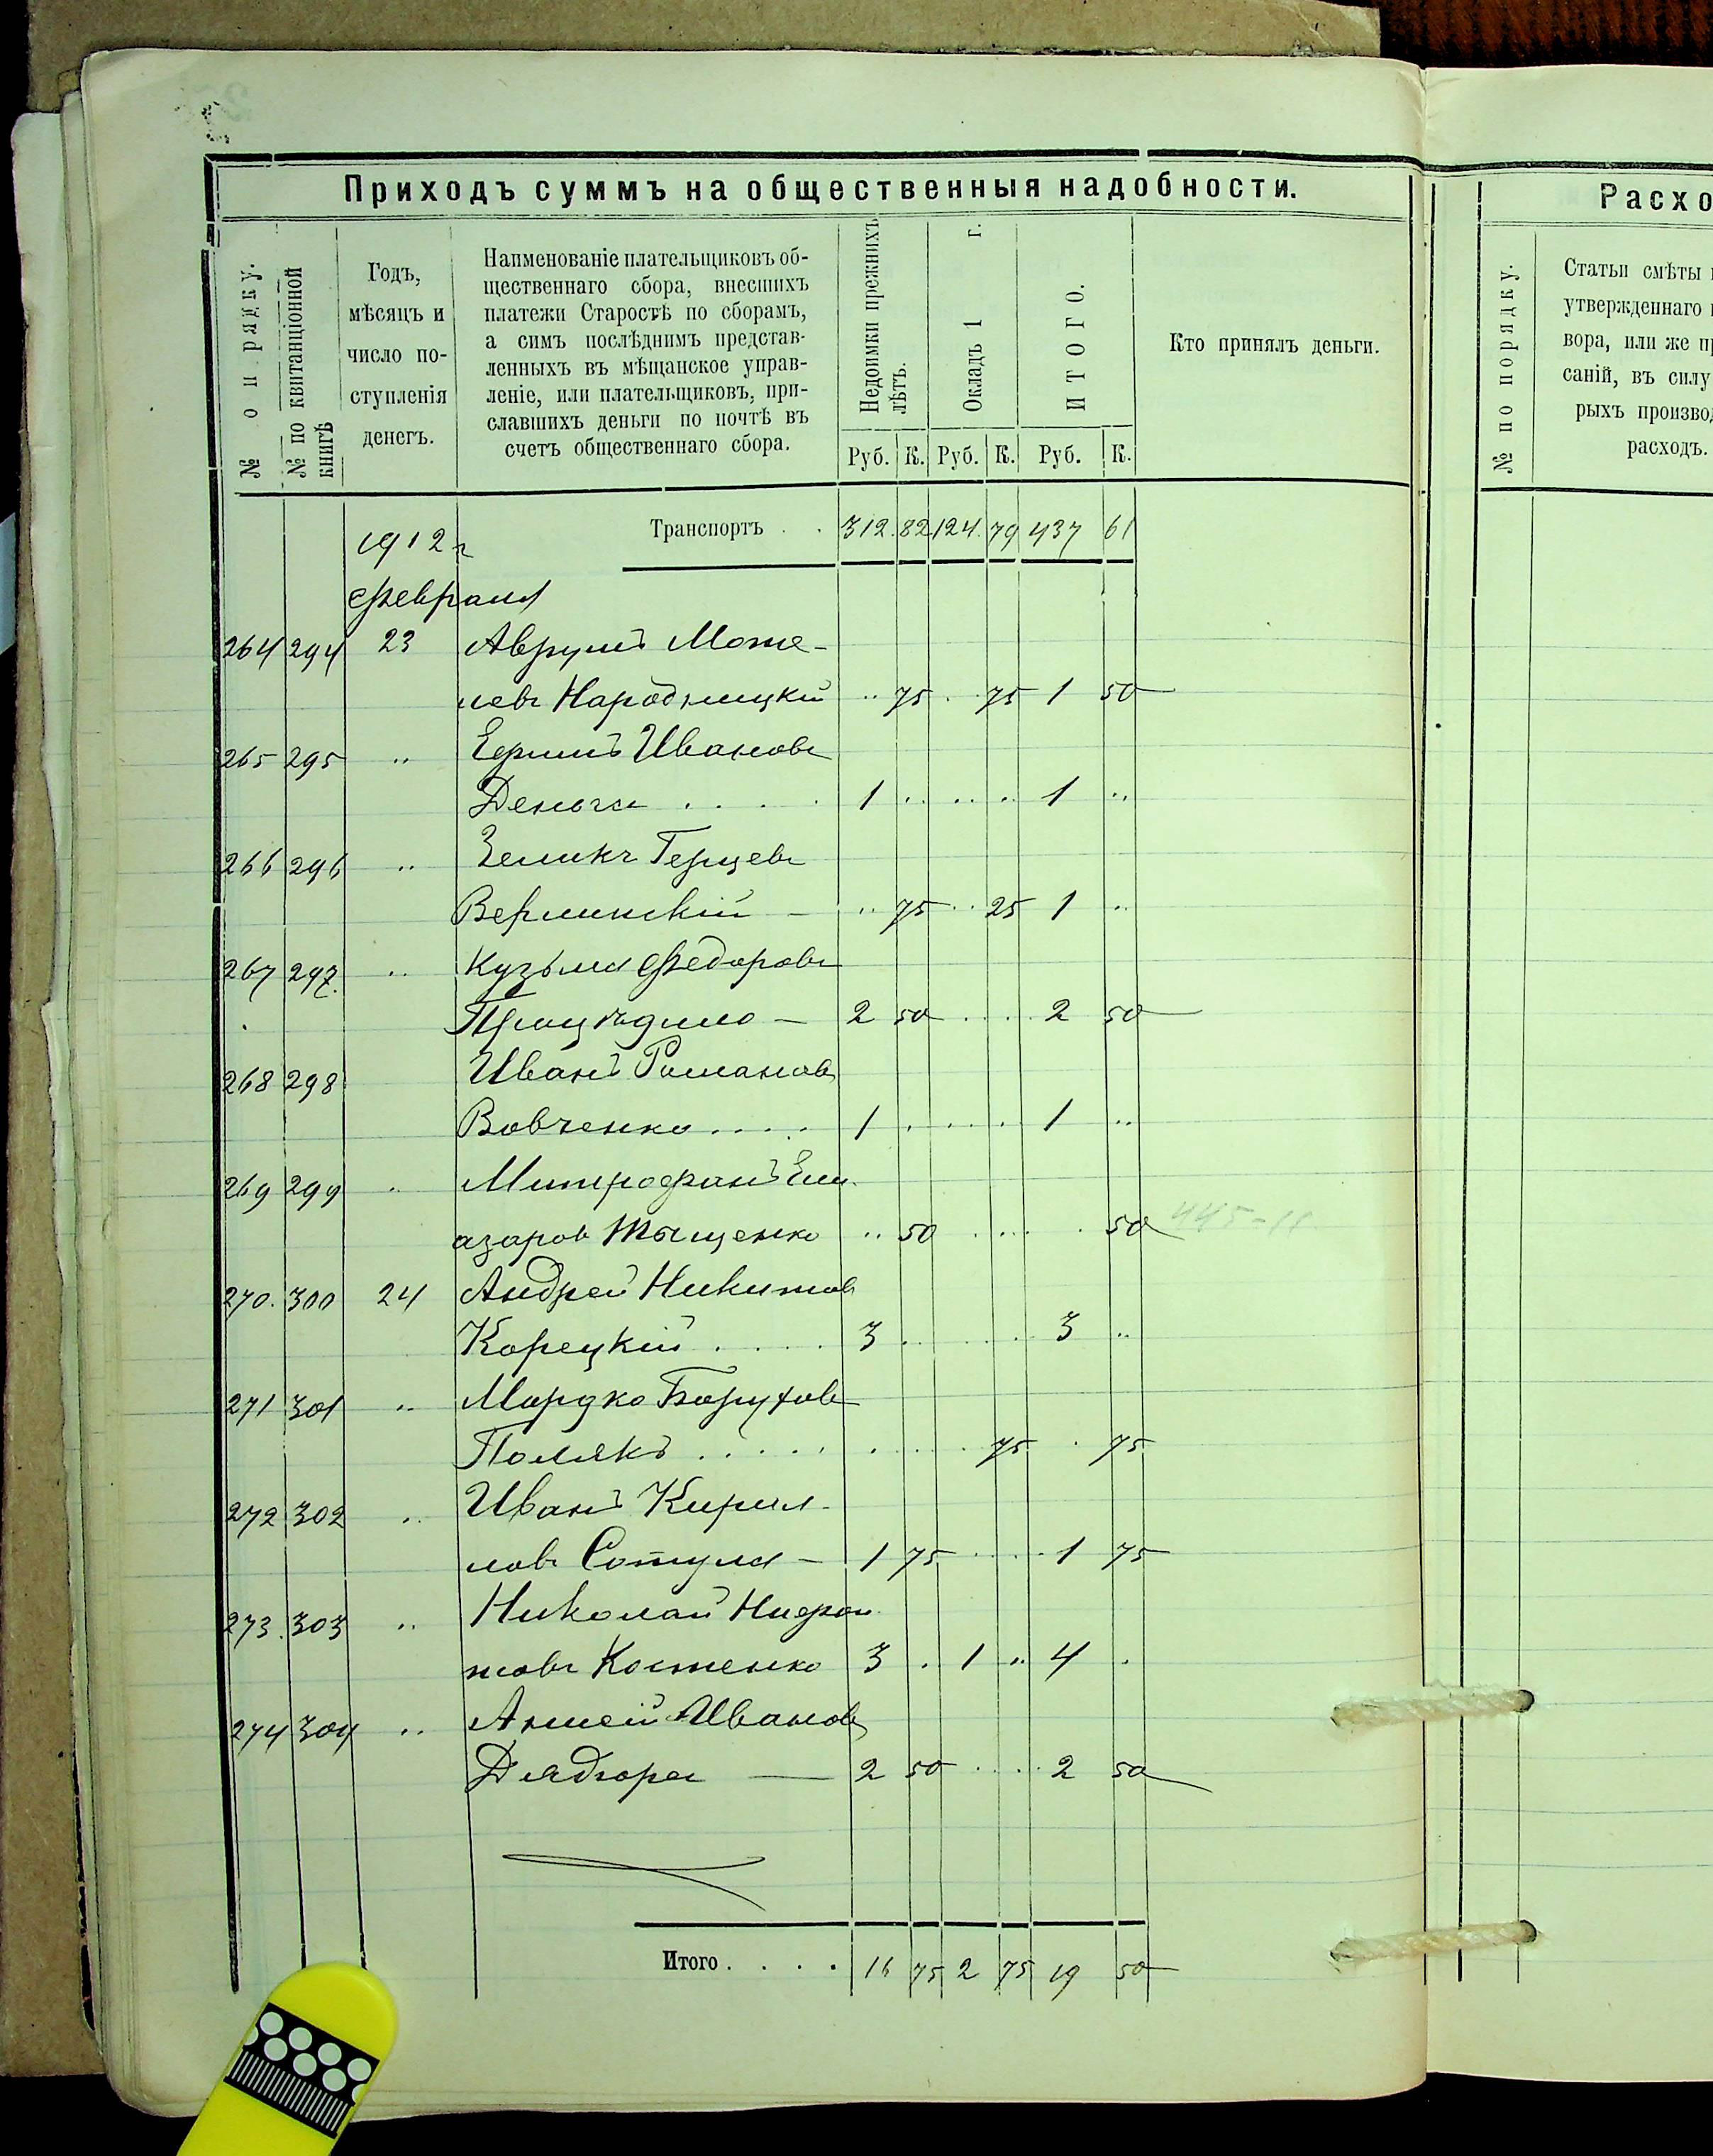 Приходъ суммъ на общественныя надобности.
№ по рядку.
№ по квитанціонной книгѣ
Годъ,
мѣсяцъ и
число по-
ступленія
денегъ.
Наименованіе плательщиковъ об-
щественнаго сбора, внесшихъ
платежи Старостѣ по сборамъ,
а симъ послѣднимъ представ-
ленныхъ въ мѣщанское управ-
леніе, или плательщиковъ, при-
славшихъ деньги по почтѣ въ
счетъ общественнаго сбора.
Недоимки прежнихъ лѣтъ.
Окладъ 1 г.
ИТОГО.
Кто принялъ деньги.
Руб. К. Руб. К. Руб. К.
Транспортъ . . 312. 82 124. 79 437 61
1912 г
Февраля
264 294 23 Аврумъ Моше-
левъ Народницкій .. 75 . 75 1 50
265 295 .. Ефимъ Ивановъ
Деньга . . . . 1 .. .. .. 1 ..
266 296 .. Зеликъ Герцевъ
Верлинскій — .. 75 .. 25 1 ..
267 297. .. Кузьма Федоровъ
2 50 . . . . 2 50
268 298 Иванъ Романовъ
Вовченко . . . . 1 . . . . 1 ..
269 299 .. Митрофанъ Ели-
азаров Тыщенко .. 50 . . . . 50 445-11
270. 300 24 Андрей Никитовъ
Корецкій . . . . 3 . . . . 3 ..
271 301 .. Мордко Боруховъ
Полякъ . . . . . . . . 75 . 75
272 302 .. Иванъ Кирил-
ловъ Сотула — 1 75 . . . . 1 75
273. 303 .. Николай
товъ Костенко 3 . 1 .. 4 .
274 304 .. Ивановъ
Дядюра — 2 50 . . . . 2 50
Итого . . . . 16 75 2 75 19 50
Расхо
№ по порядку.
Статьи смѣты
утвержденнаго
вора, или же пр
саній, въ силу
рыхъ производ
расходъ.